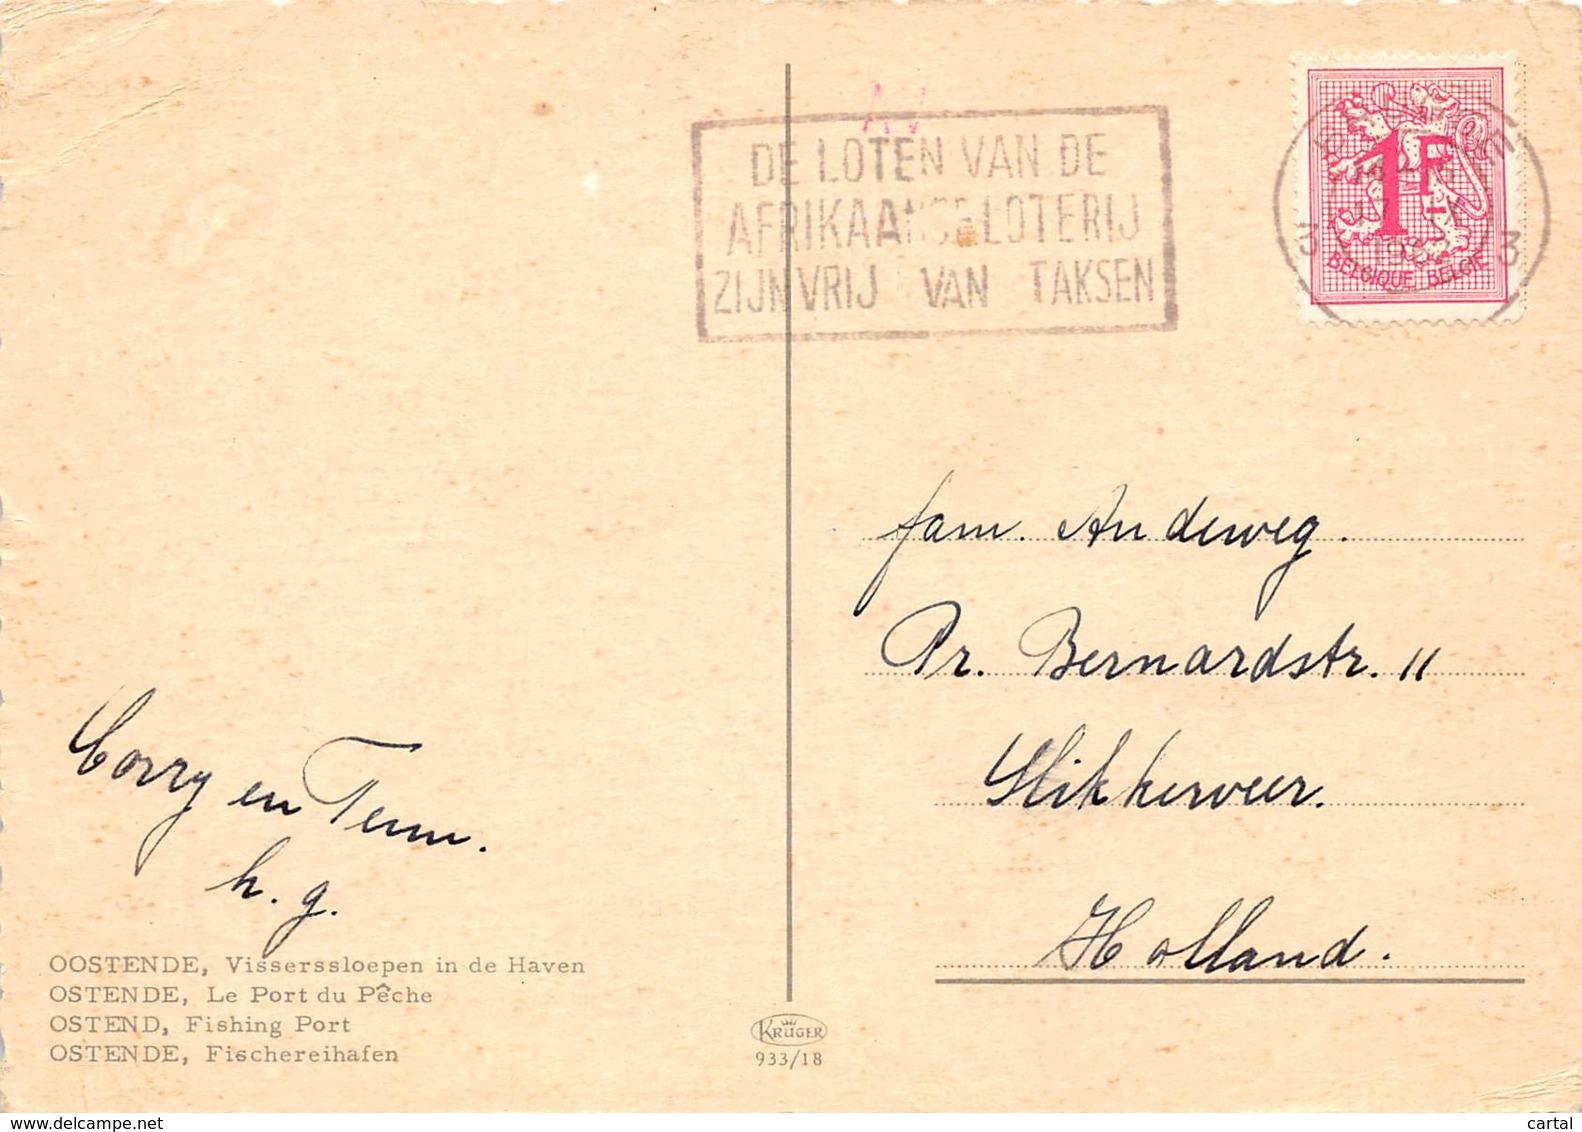 DE LOTEN VAN DE
AFRIKAANSE LOTERIJ
ZIJN VRIJ VAN TAKSEN
1F
BELGIQUE BELGIE
3 3
fam. Andeweg.
Pr. Bernardstr. 11
Slikkerveer.
Holland.
Corry en Teun.
h. g.
OOSTENDE, Visserssloepen in de Haven
OSTENDE, Le Port du Pêche
OSTEND, Fishing Port
OSTENDE, Fischereihafen
KRÜGER
933/18
www.delcampe.net
cartal